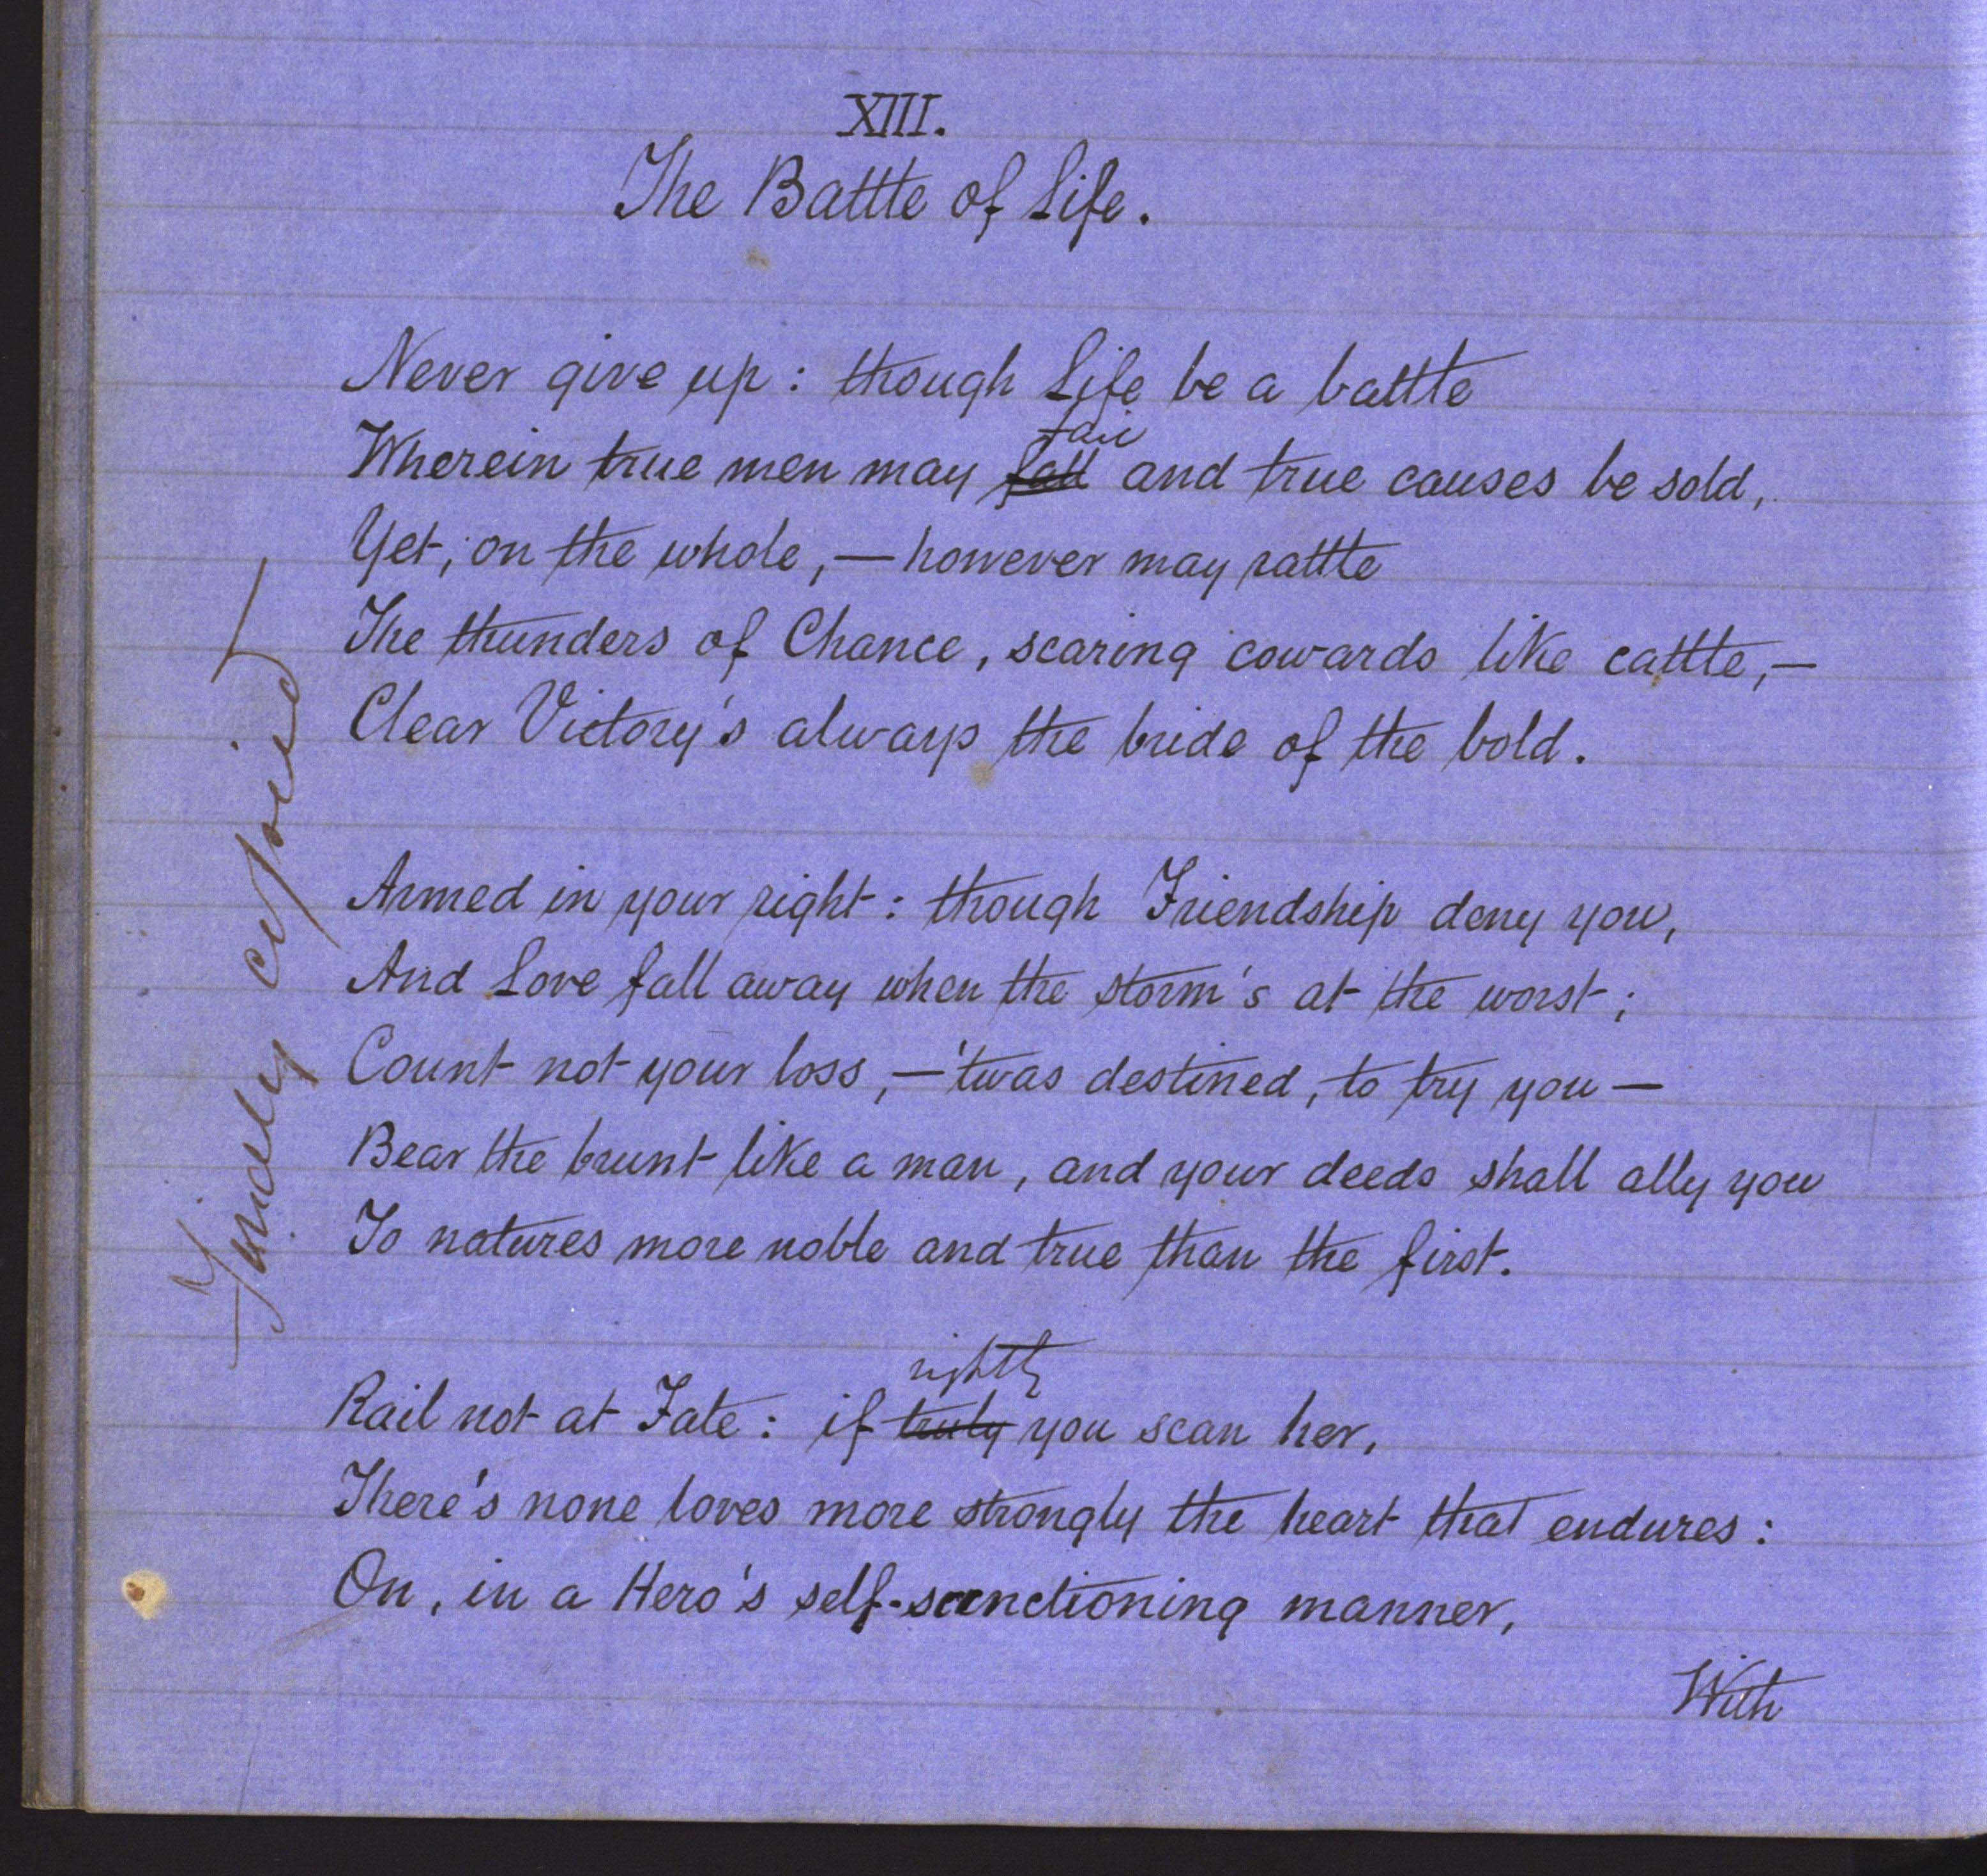 XIII.
The Battle of Life.
Never give up: though Life be a battle
fail
Wherein true men may fall and true causes be sold,
Yet, on the whole,—however may rattle
The thunders of Chance, scaring cowards like cattle,—
Clear Victory's always the bride of the bold.
Armed in your right: though Friendship deny you,
And Love fall away when the storm's at the worst;
Count not your loss,—'twas destined, to try you—
Bear the brunt like a man, and your deeds shall ally you
To natures more noble and true than the first.
rightly
Rail not at Fate: if truly you scan her,
There's none loves more strongly the heart that endures:
On, in a Hero's self-sanctioning manner,
With
Finally copied